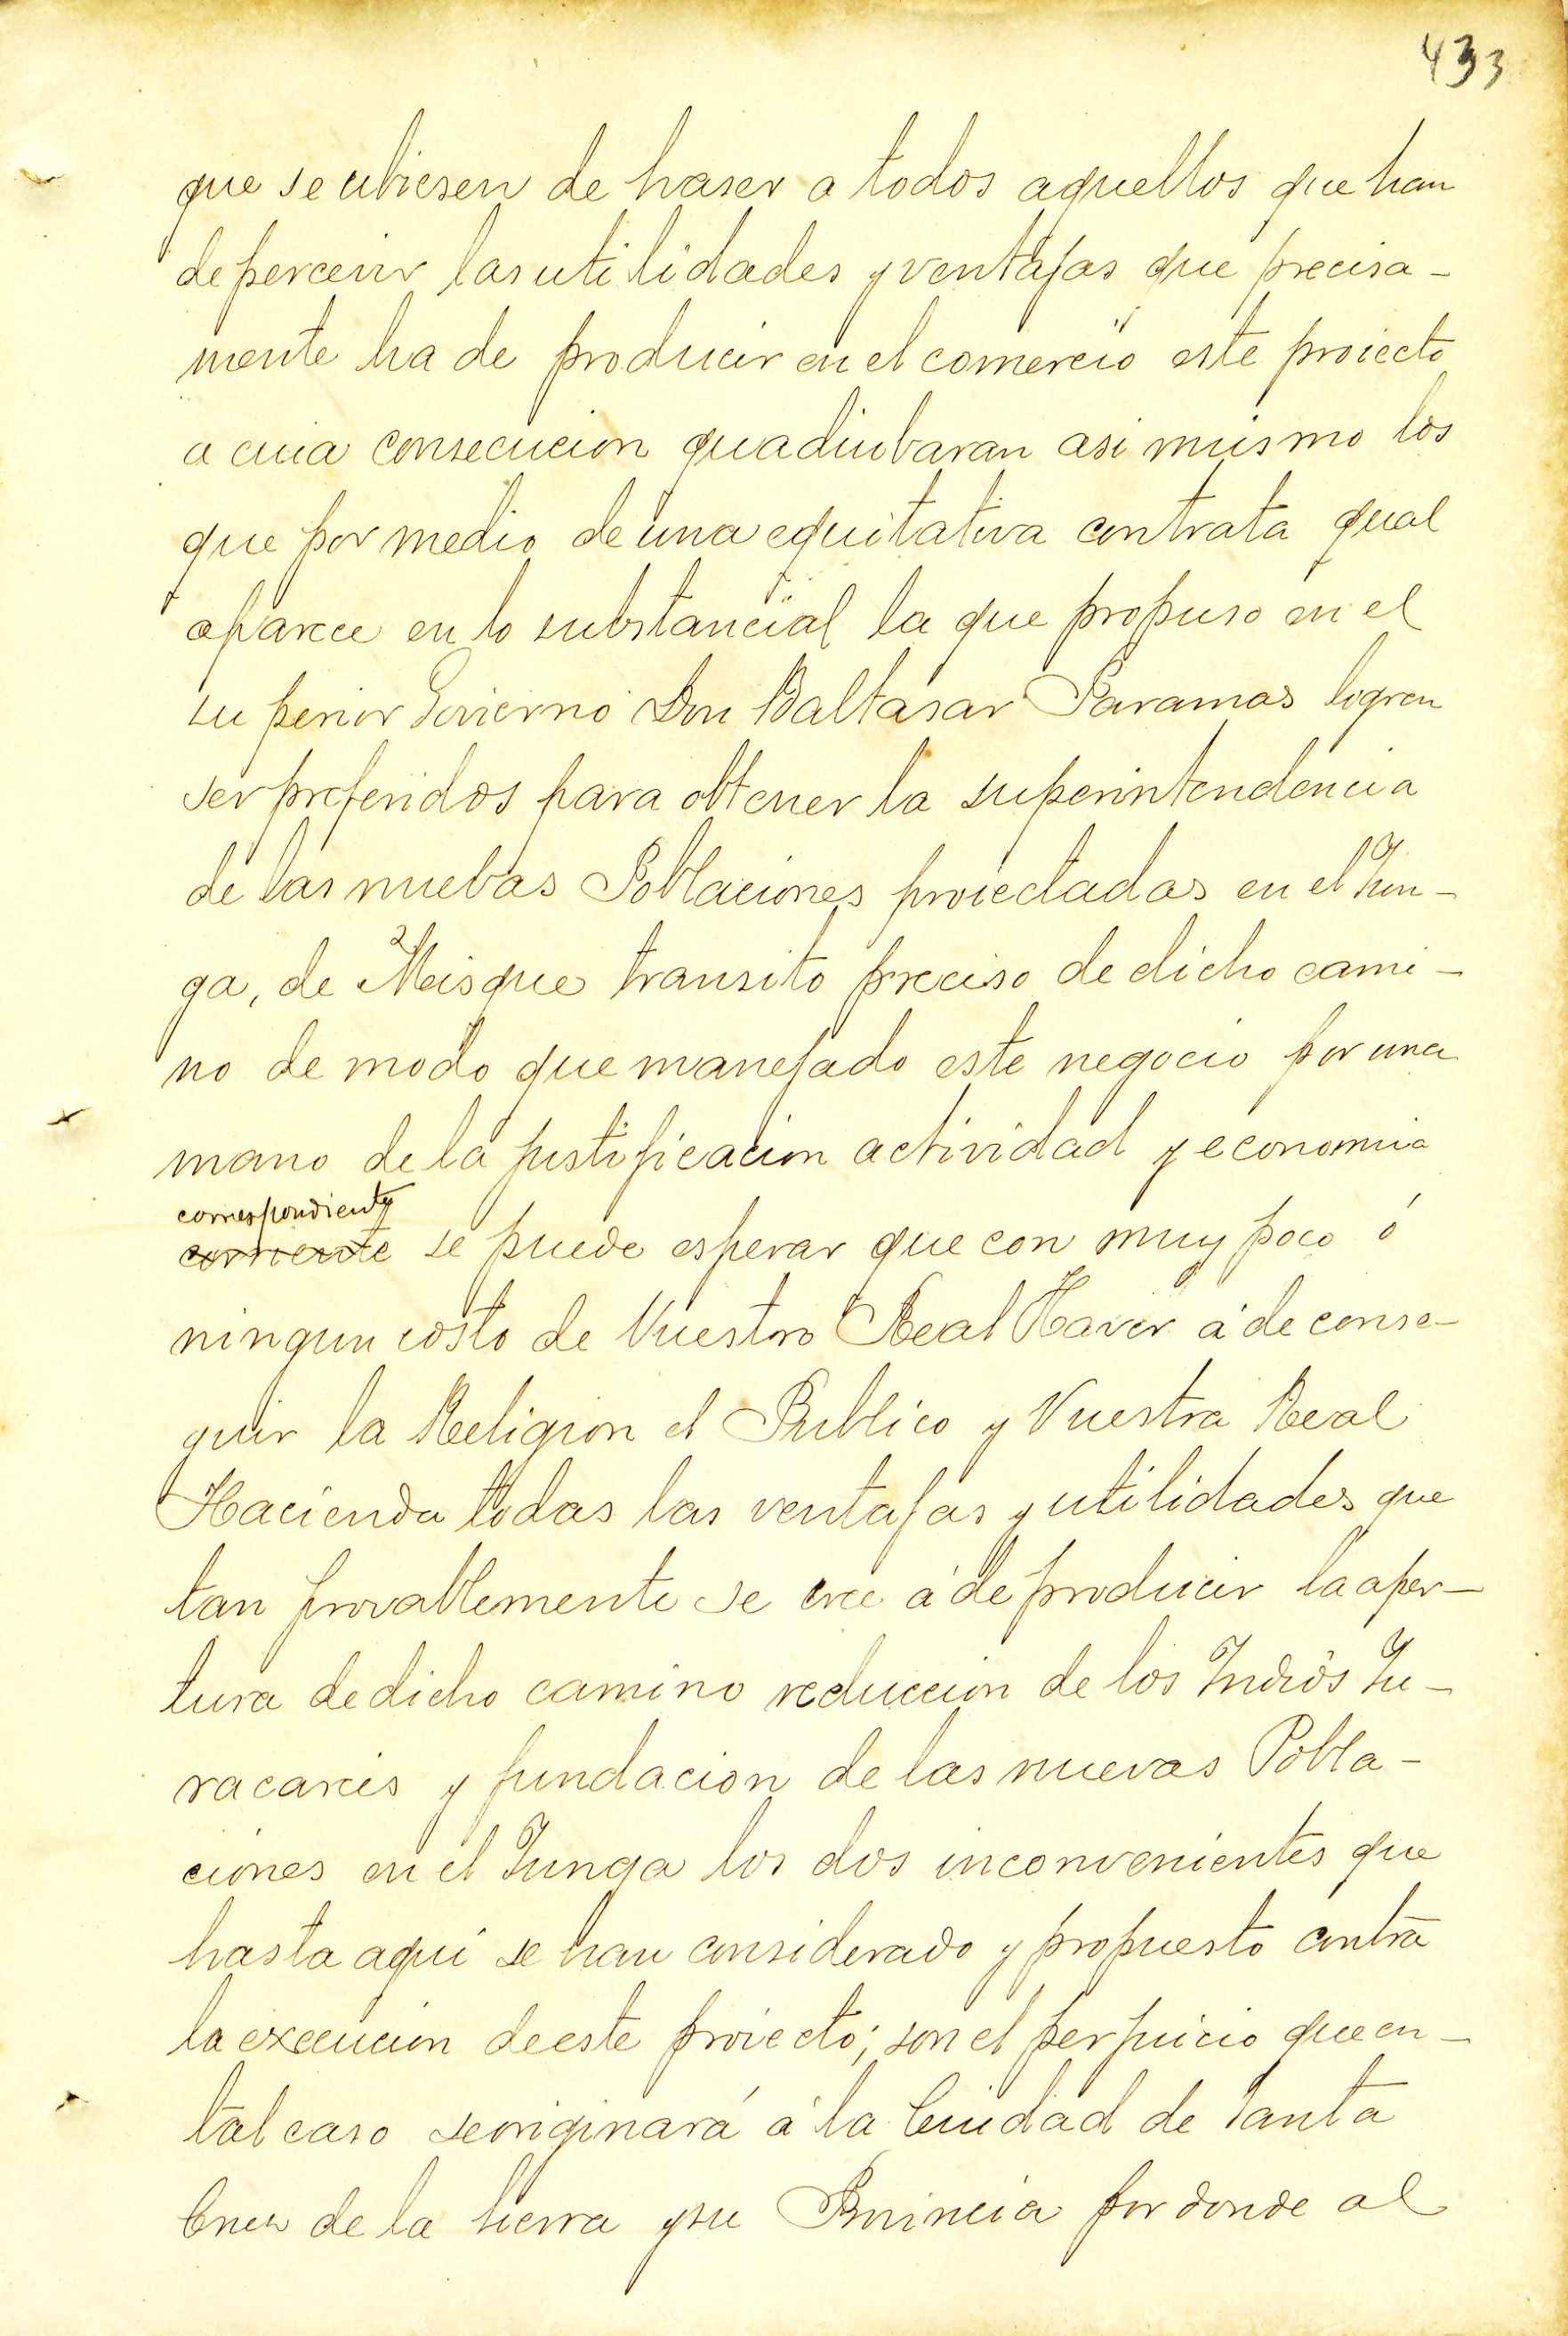 433
que se ubiesen de haser a todos aquellos que han
de percevir las utilidades y ventajas que precisa-
mente ha de producir en el comercio este proiecto
a cuia consecucion quadiubaran asi mismo los
que por medio de una equitativa contrata qual
aparece en lo substancial la que propuso en el
superior Govierno Don Baltasar Paramas logren
ser preferidos para obtener la superintendencia
de las nuebas Poblaciones proiectadas en el Yun-
ga, de Misque transito preciso de dicho cami-
no de modo que manejado este negocio por una
mano de la justificacion actividad y economia
correspondiente
corriente se puede esperar que con muy poco ó
ningun costo de Vuestro Real Haver á de conse-
guir la Religion el Publico y Vuestra Real
Hacienda todas las ventajas y utilidades que
tan provablemente se cree á de producir la aper-
tura de dicho camino reduccion de los Indios Yu-
racarees y fundacion de las nuevas Pobla-
ciones en el Yunga los dos inconvenientes que
hasta aqui se han considerado y propuesto contra
la execucion de este proiecto; son el perjuicio que en-
tal caso se originará á la Ciudad de Santa
Cruz de la Sierra y su Provincia por donde al